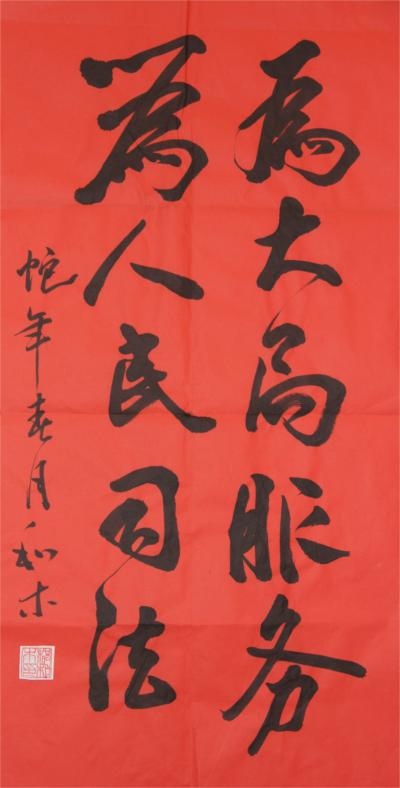 為大局服务
為人民司法
蛇年春月和木